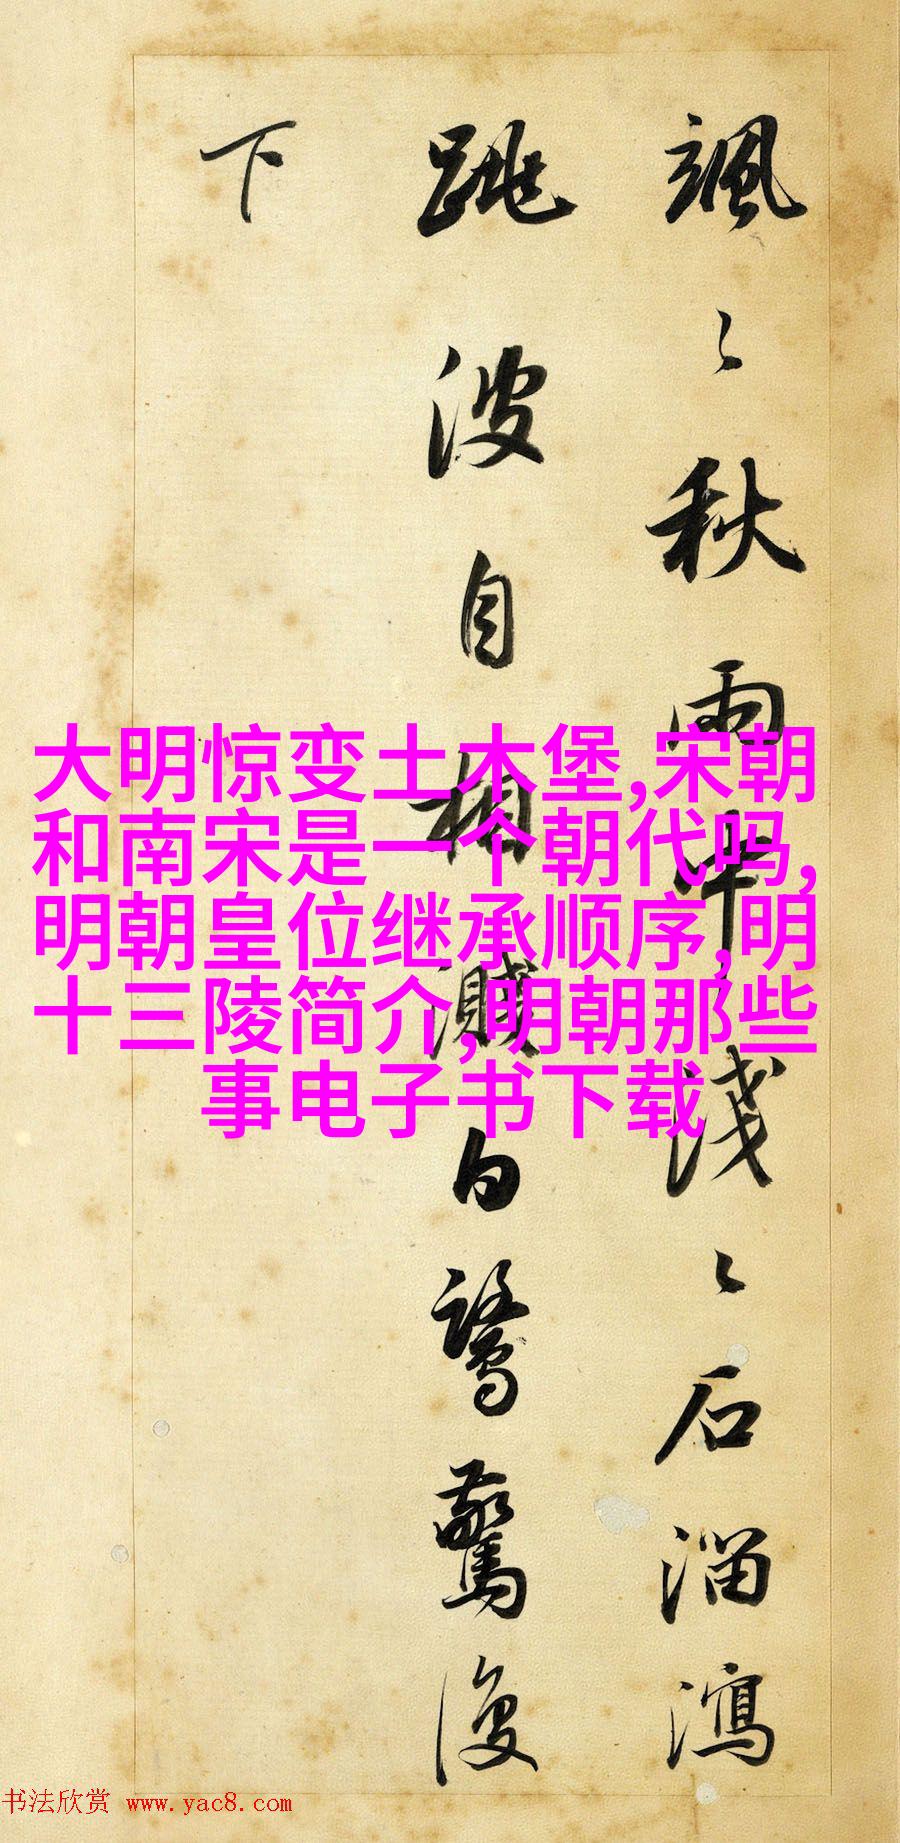 飒々秋雨中浅々石溜泻
跳波自相溅白鹭惊复
下
大明惊变土木堡,宋朝
和南宋是一个朝代吗,
明朝皇位继承顺序,明
十三陵简介,明朝那些
事电子书下载
书法欣赏 www.yac8.com